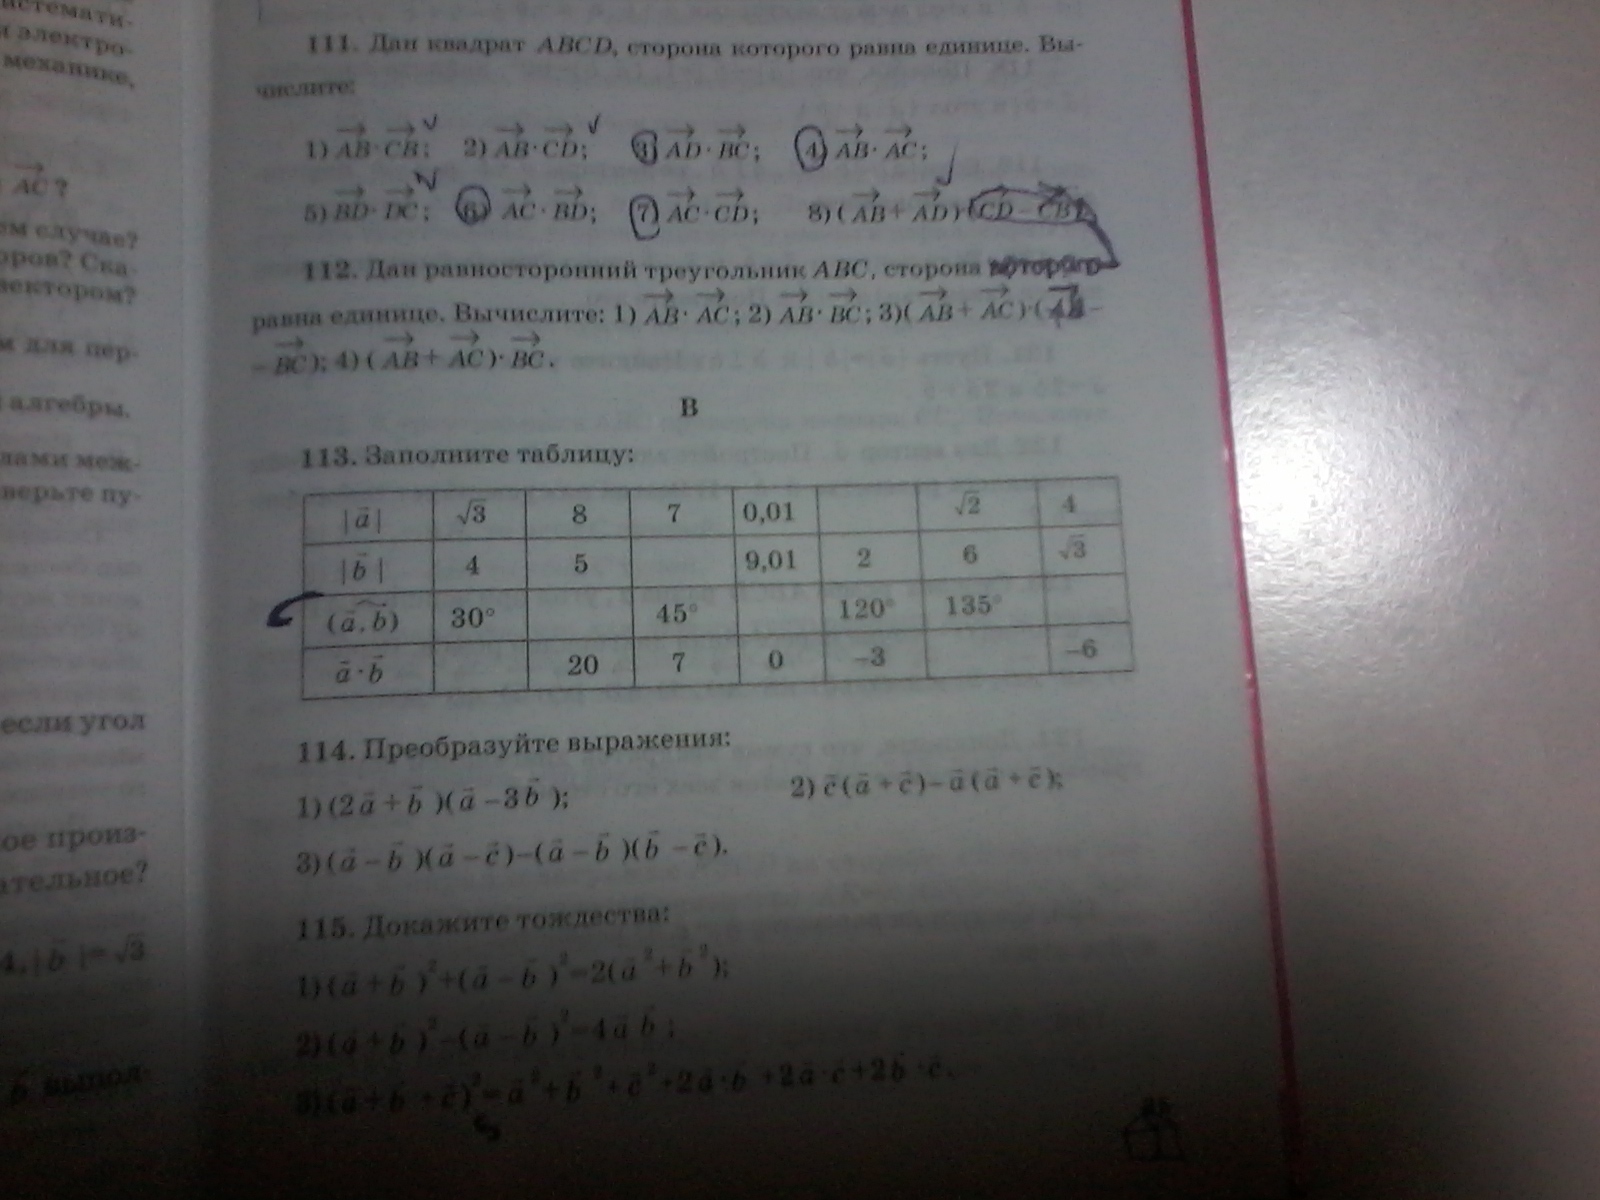 истемати-
и электро-
механике,
AC?
ем случае?
оров? Ска
вектором?
м для пер-
алгебры.
лами меж-
верьте пу-
если угол
ое произ-
ательное?
4, |b|=√3
b выпол-
111. Дан квадрат ABCD, сторона которого равна единице. Вы-
числите:
1) AB·CB; 2) AB·CD; 3) AD·BC; 4) AB·AC;
5) BD·DC; 6) AC·BD; 7) AC·CD; 8) (AB+AD)(CD–CB).
112. Дан равносторонний треугольник ABC, сторона которого
равна единице. Вычислите: 1) AB·AC; 2) AB·BC; 3)(AB+AC)·(AB–
–BC); 4)(AB+AC)·BC.
В
113. Заполните таблицу:
|a| √3 8 7 0,01 √2 4
|b| 4 5 9,01 2 6 √3
(a,b) 30° 45° 120° 135°
a·b 20 7 0 –3 –6
114. Преобразуйте выражения:
1)(2a+b)(a–3b); 2) c(a+c)–a(a+c);
3)(a–b)(a–c)–(a–b)(b–c).
115. Докажите тождества:
1)(a+b)²+(a–b)²=2(a²+b²);
2)(a+b)²–(a–b)²=4a b;
3)(a+b+c)²=a²+b²+c²+2a·b+2a·c+2b·c.